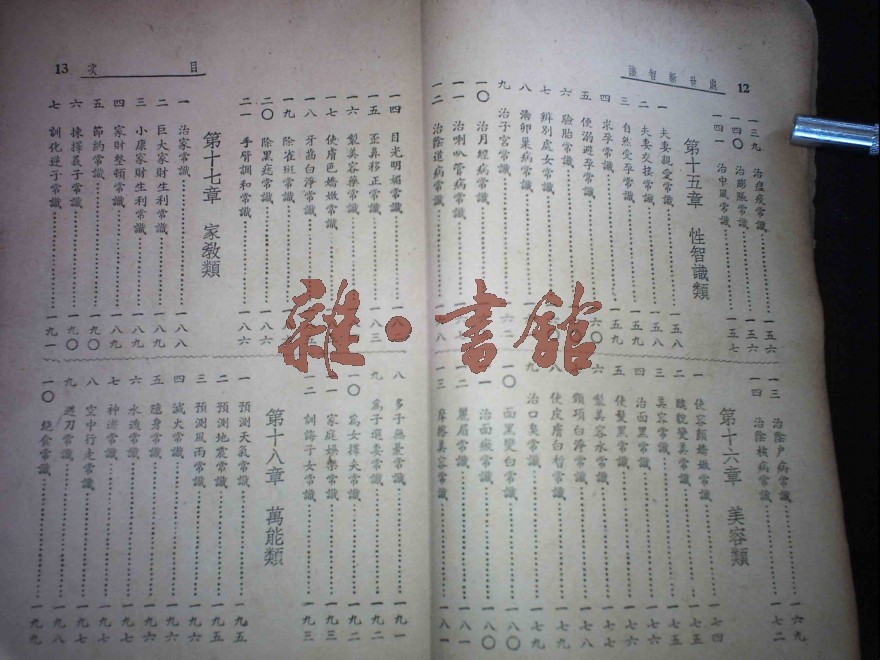 處世新智識
12
一三九 治瘟疫常識 一五六
一四〇 治膨脹常識
一四一 治中風常識 一五七
第十五章 性智識類
一 夫妻親愛常識 一五八
二 夫妻交接常識 一五八
三 自然受孕常識 一五九
四 求孕常識 一五九
五 使溺避孕常識
六 驗胎常識 一六〇
七 辨別處女常識
八 治卵巢病常識
九 治子宮常識 一六二
一〇 治月經病常識
一一 治喇叭管病常識
一二 治陰道病常識
一三 治陰戶病常識 一六九
一四 治陰核病常識 一七二
第十六章 美容類
一 使容顏嬌嫩常識 一七四
二 醜貌變美常識 一七五
三 美容常識 一七六
四 治面黑常識 一七六
五 使髮黑常識 一七七
六 製美容水常識 一七七
七 頸項白淨常識 一七八
八 使皮膚白皙常識 一七九
九 治口臭常識 一七九
一〇 面黑變白常識 一八〇
一一 治面皰常識 一八〇
一二 麗眉常識 一八一
一三 摩擦美容常識 一八一
目次
13
一四 目光明媚常識
一五 歪鼻移正常識 一八三
一六 製美容藥常識
一七 使膚色嬌嫩常識
一八 牙齒白淨常識
一九 除雀斑常識
二〇 除黑痣常識 一八六
二一 手臂調和常識 一八六
第十七章 家教類
一 治家常識 一八八
二 巨大家財生利常識 一八九
三 小康家財生利常識 一八九
四 家財整頓常識 一八九
五 節約常識 一九〇
六 揀擇義子常識 一九〇
七 訓化逆子常識 一九一
八 多子無憂常識 一九一
九 爲子選妻常識 一九二
一〇 爲女擇夫常識 一九二
一一 家庭娛樂常識 一九三
一二 訓誨子女常識 一九三
第十八章 萬能類
一 預測天氣常識 一九五
二 預測地震常識 一九五
三 預測風雨常識 一九六
四 滅火常識 一九六
五 隱身常識 一九六
六 水遁常識 一九七
七 神游常識 一九七
八 空中行走常識 一九七
九 避刀常識 一九八
一〇 絕食常識 一九九
雜·書館